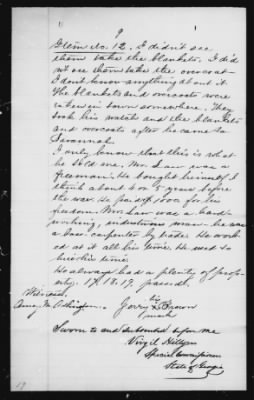 9
Item No. 12. I didn't see
them take the blankets. I did
not see them take the overcoat
I dont know anything about it
The blankets and overcoats were
taken in town somewhere. They
took his watch and the blankets
and overcoats after he came to
Savannah.
I only know that this is what
he told me. Mr. Law was a
freeman. He bought himself I
think about 4 or 5 years before
the war. He paid $1000 for his
freedom. Mr. Law was a hard-
working, industrious man. he was
a house carpenter by trade. He work
ed at it all his time. He used to
hire his time.
He always had a plenty of prop-
erty. 17. 18. 19. passed.
Witness,
his
Jerry X Brown
mark
Sworn to and subscribed before me
Virgil Hillyer
Special Commissioner
State of Georgia